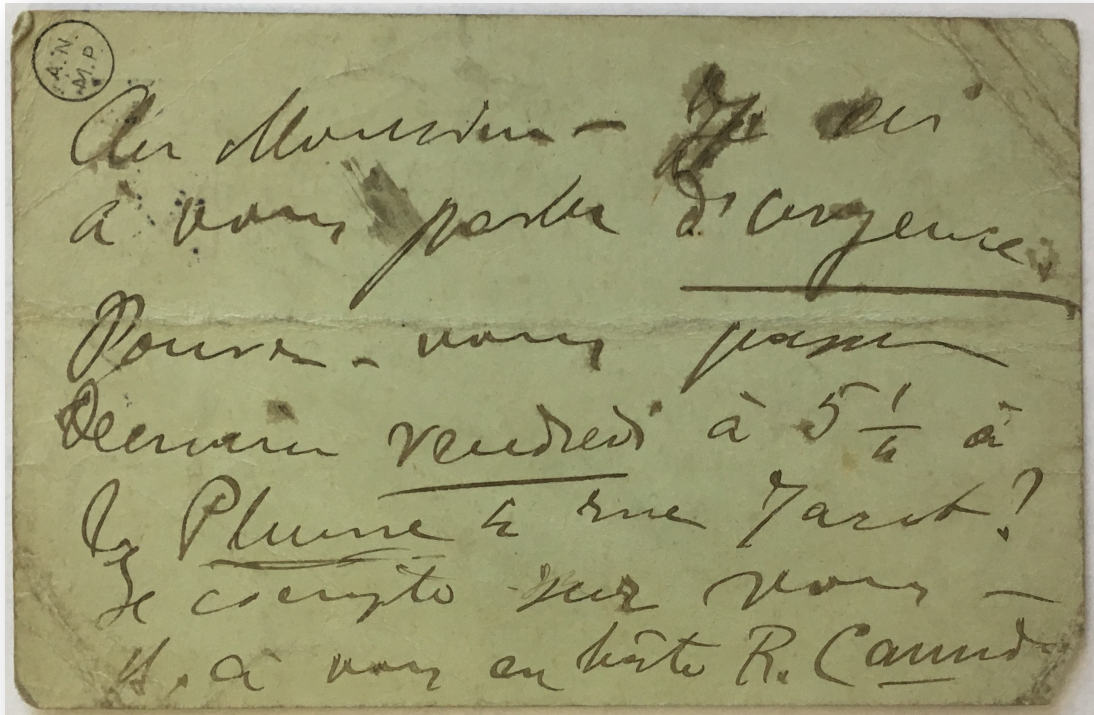 A.N.
M.P.
Cher Monsieur – J'ai
à vous parler d'urgence.
Pouvez-vous passer
Demain vendredi à 5 1/4 à
la Plume 4 rue Tarot?
Je compte sur vous –
à vous en hâte R. Canud